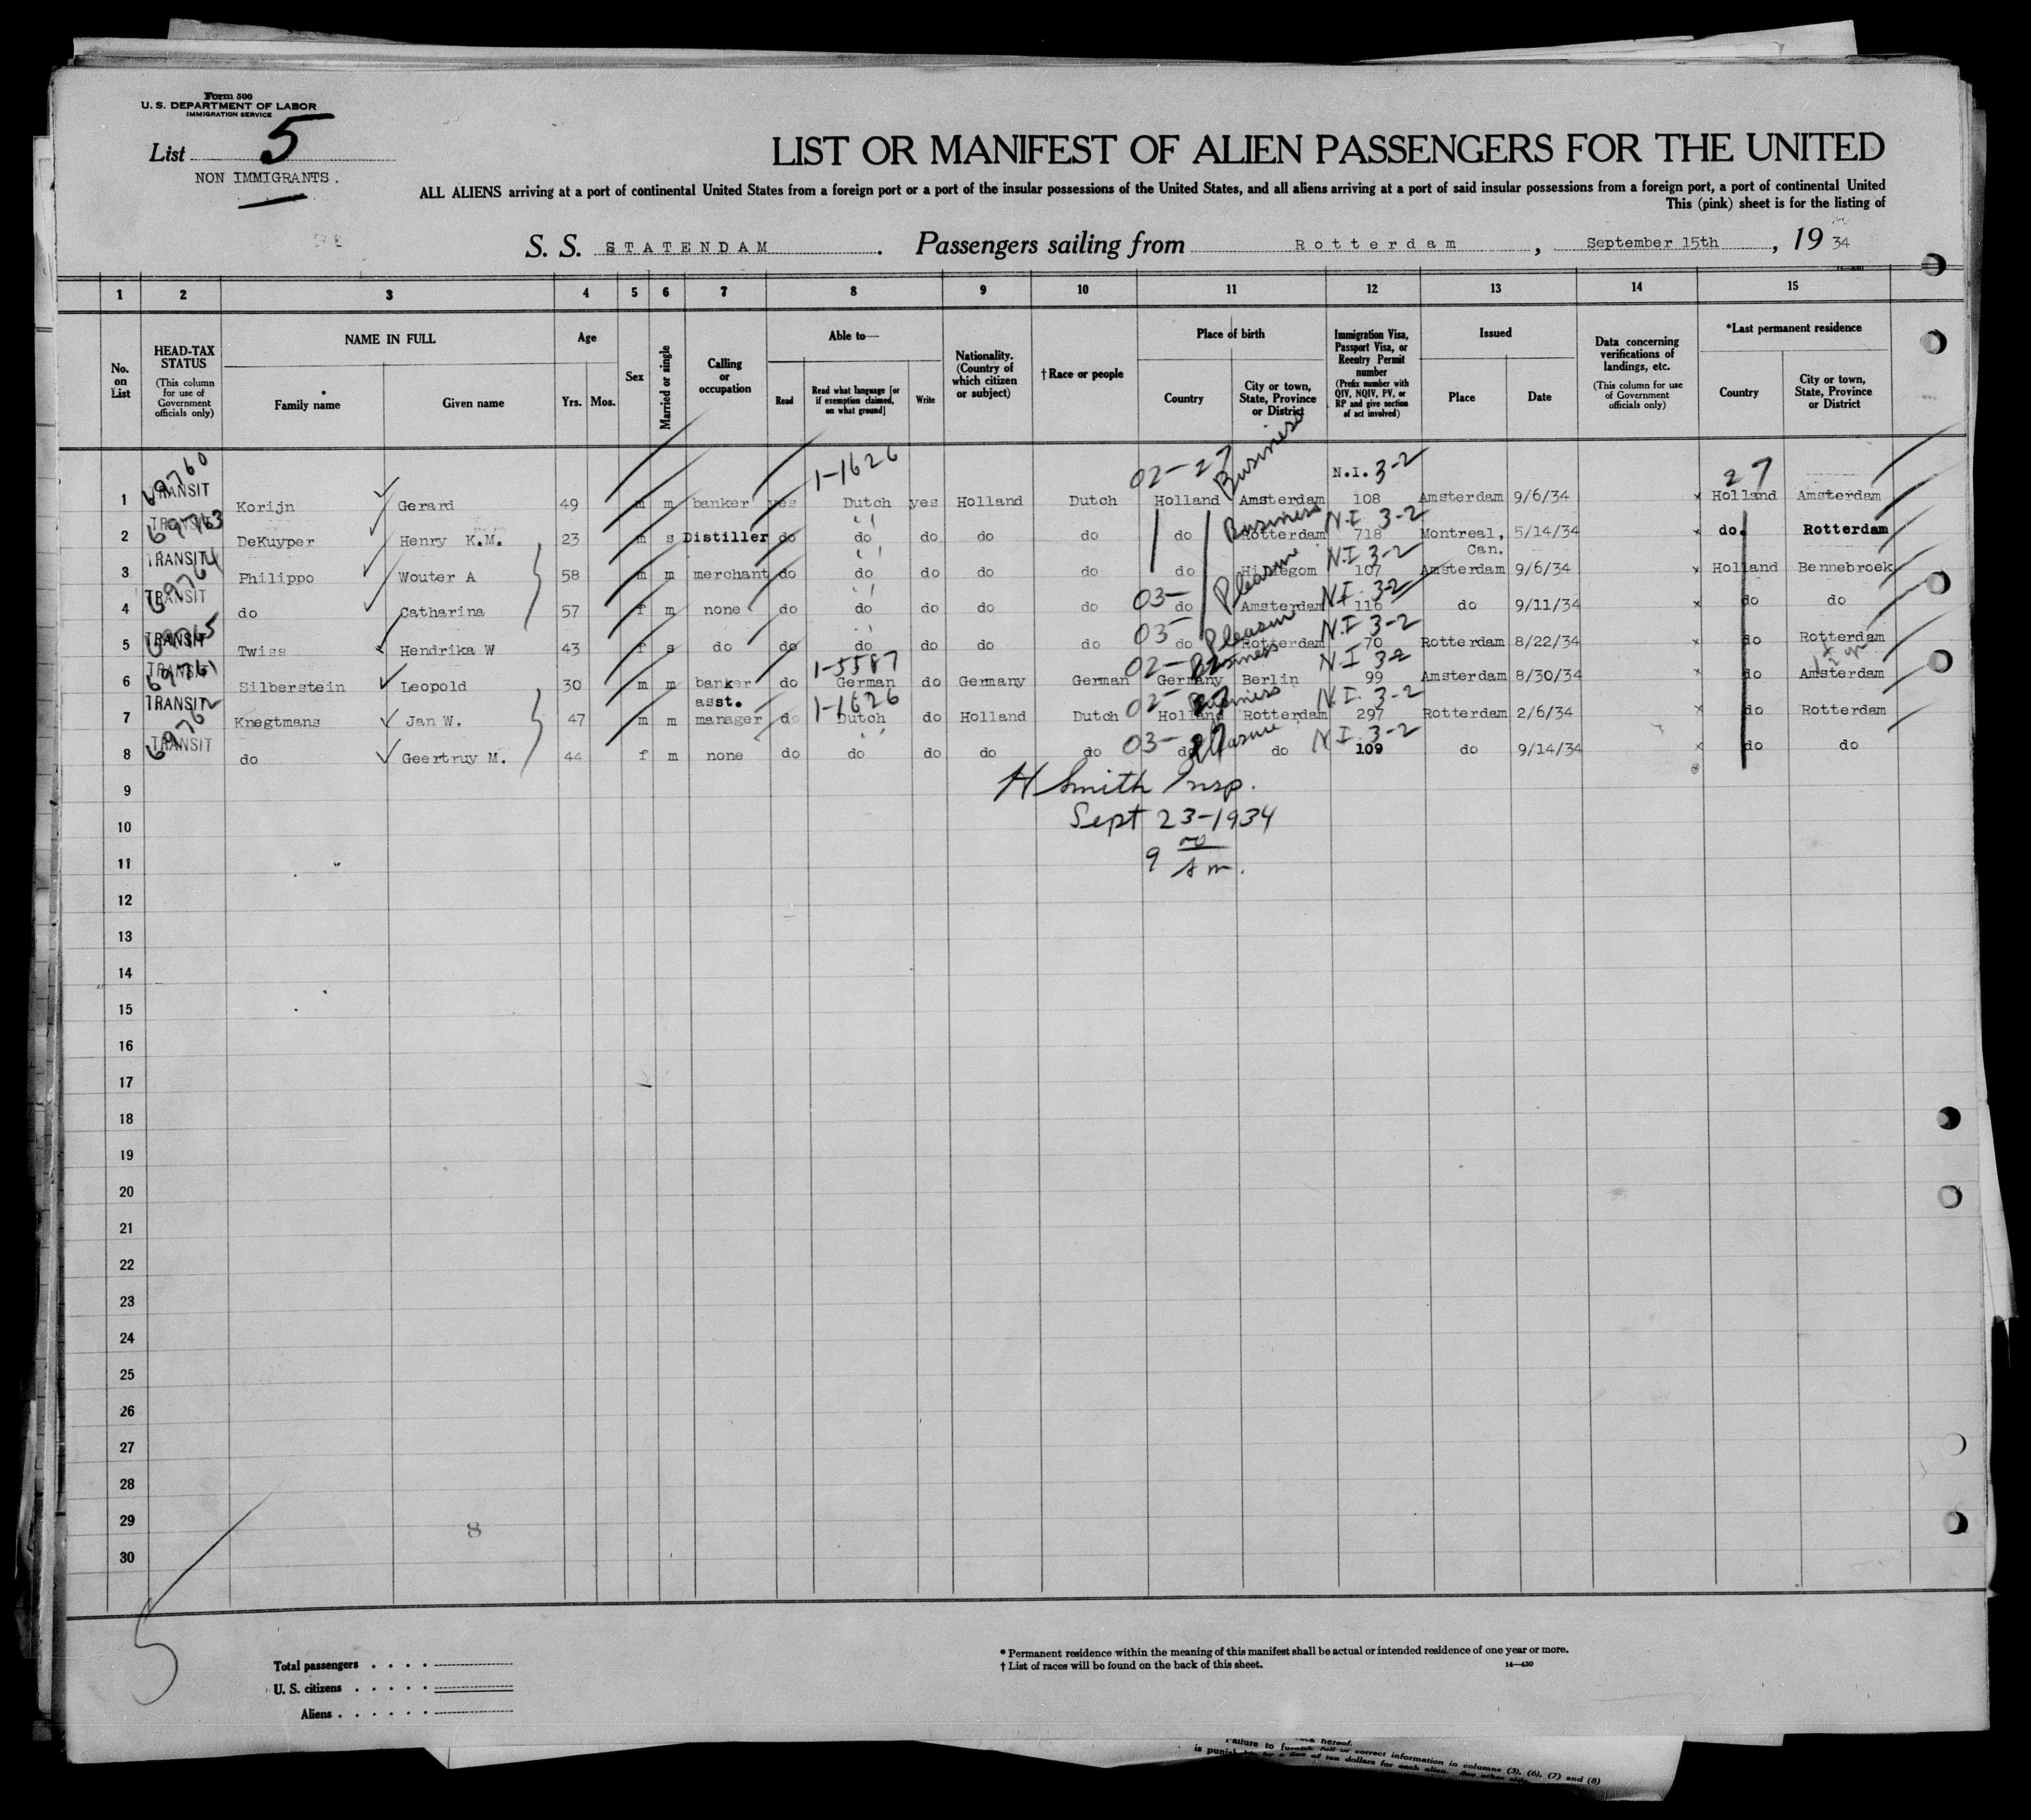 Form 500
U. S. DEPARTMENT OF LABOR
IMMIGRATION SERVICE
List 5
NON IMMIGRANTS.
LIST OR MANIFEST OF ALIEN PASSENGERS FOR THE UNITED
ALL ALIENS arriving at a port of continental United States from a foreign port or a port of the insular possessions of the United States, and all aliens arriving at a port of said insular possessions from a foreign port, a port of continental United
This (pink) sheet is for the listing of
S. S. STATENDAM. Passengers sailing from Rotterdam, September 15th, 19 34
1 2 3 4 5 6 7 8 9 10 11 12 13 14 15
No. on List
HEAD-TAX STATUS (This column for use of Government officials only)
NAME IN FULL Family name Given name
Age Yrs. Mos.
Sex
Married or single
Calling or occupation
Able to— Read Read what language [or if exemption claimed, on what ground] Write
Nationality. (Country of which citizen or subject)
† Race or people
Place of birth Country City or town, State, Province or District
Immigration Visa, Passport Visa, or Reentry Permit number (Prefix number with QIV, NQIV, PV, or RP and give section of act involved)
Issued Place Date
Data concerning verifications of landings, etc. (This column for use of Government officials only)
*Last permanent residence Country City or town, State, Province or District
69760 1-1626 02-27 Business N.I. 3-2 27
1 TRANSIT Korijn Gerard 49 m m banker yes Dutch yes Holland Dutch Holland Amsterdam 108 Amsterdam 9/6/34 x Holland Amsterdam
69763 Business N.I 3-2
2 TRANSIT DeKuyper Henry K.M. 23 m s Distiller do do do do do do Rotterdam 718 Montreal, Can. 5/14/34 x do. Rotterdam
69764 N.I 3-2
3 TRANSIT Philippo Wouter A 58 m m merchant do do do do do do Hillegom 107 Amsterdam 9/6/34 x Holland Bennebroek
03- Pleasure N.I 3-2
4 TRANSIT do Catharina 57 f m none do do do do do do Amsterdam 116 do 9/11/34 x do do
69765 03- Pleasure N.I 3-2
5 TRANSIT Twiss Hendrika W 43 f s do do do do do do do Rotterdam 70 Rotterdam 8/22/34 x do Rotterdam
69761 1-5587 02- Business N.I 3-2
6 TRANSIT Silberstein Leopold 30 m m banker do German do Germany German Germany Berlin 99 Amsterdam 8/30/34 do Amsterdam
69762 1-1626 02-27 Business N.I. 3-2
7 TRANSIT Knegtmans Jan W. 47 m m asst. manager do Dutch do Holland Dutch Holland Rotterdam 297 Rotterdam 2/6/34 x do Rotterdam
03-27 Pleasure N.I. 3-2
8 TRANSIT do Geertruy M. 44 f m none do do do do do do do 109 do 9/14/34 x do do
9 H Smith Insp.
10 Sept 23-1934
11 9 00 Am.
12
13
14
15
16
17
18
19
20
21
22
23
24
25
26
27
28
29 8
30
5
Total passengers . . . .
U. S. citizens . . . . .
Aliens . . . . . .
* Permanent residence within the meaning of this manifest shall be actual or intended residence of one year or more.
† List of races will be found on the back of this sheet.
14—430
hereof.
Failure to furnish full or correct information in columns (3), (6), (7) and (8)
is punishable by a fine of ten dollars for each alien. See other side.